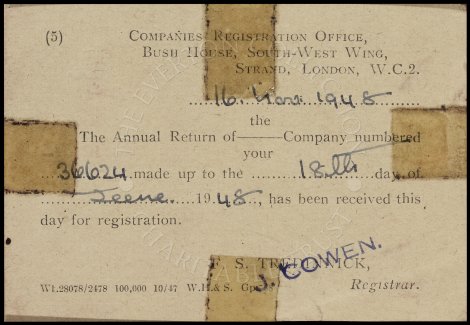 (5) COMPANIES REGISTRATION OFFICE,
BUSH HOUSE, SOUTH-WEST WING,
STRAND, LONDON, W.C.2.
16 Nov. 1948
the
The Annual Return of——Company numbered
your
36624 made up to the 18th day of
June 1948, has been received this
day for registration.
F. S. TREDINNICK,
J. COWEN.
Wt.28078/2478 100,000 10/47 W.H.& S. Registrar.